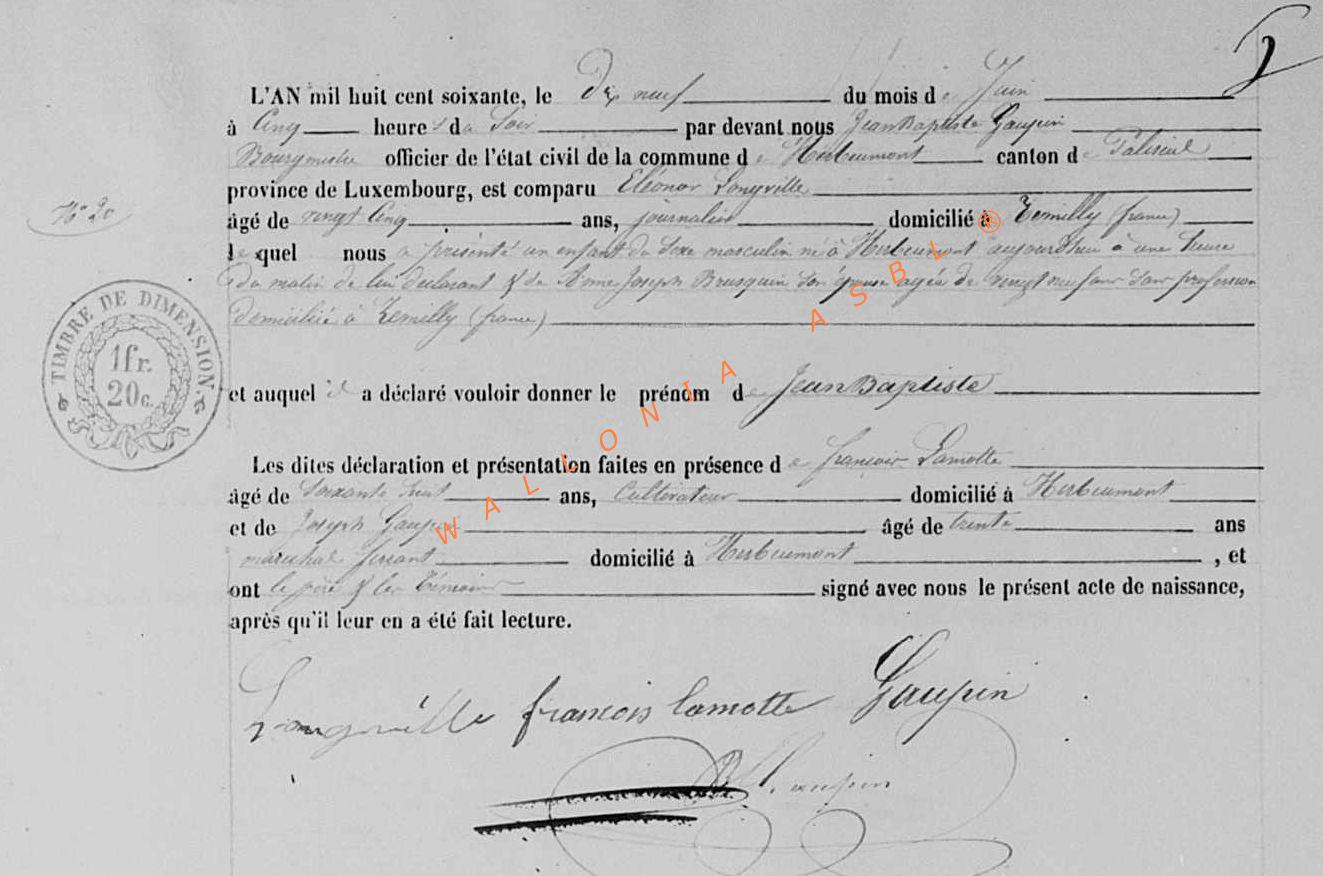 L'AN mil huit cent soixante, le Dix neuf du mois de Juin
à Cinq heures du Soir par devant nous Jean Baptiste Gaupin
Bourgmestre officier de l'état civil de la commune de Herbeumont canton de Paliseul
province de Luxembourg, est comparu Eléonor Longville
N° 20
âgé de vingt Cinq ans, journalier domicilié à Tremilly (france)
lequel nous a présenté un enfant du Sexe masculin né à Herbeumont aujourd'hui à une heure
du matin de lui déclarant & de Anne Joseph Brusquin Son épouse agée de vingt neuf ans Sans profession
domiciliée à (france)
TIMBRE DE DIMENSION
1fr.
20c.
et auquel il a déclaré vouloir donner le prénom de Jean Baptiste
Les dites déclaration et présentation faites en présence de françois Lamotte
âgé de Soixante huit ans, Cultivateur domicilié à Herbeumont
et de Joseph Gaupin âgé de trente ans
maréchal ferrant domicilié à Herbeumont, et
ont le père & les témoins signé avec nous le présent acte de naissance,
après qu'il leur en a été fait lecture.
Longville françois lamotte Gaupin
Gaupin
WALLONIA ASBL ®